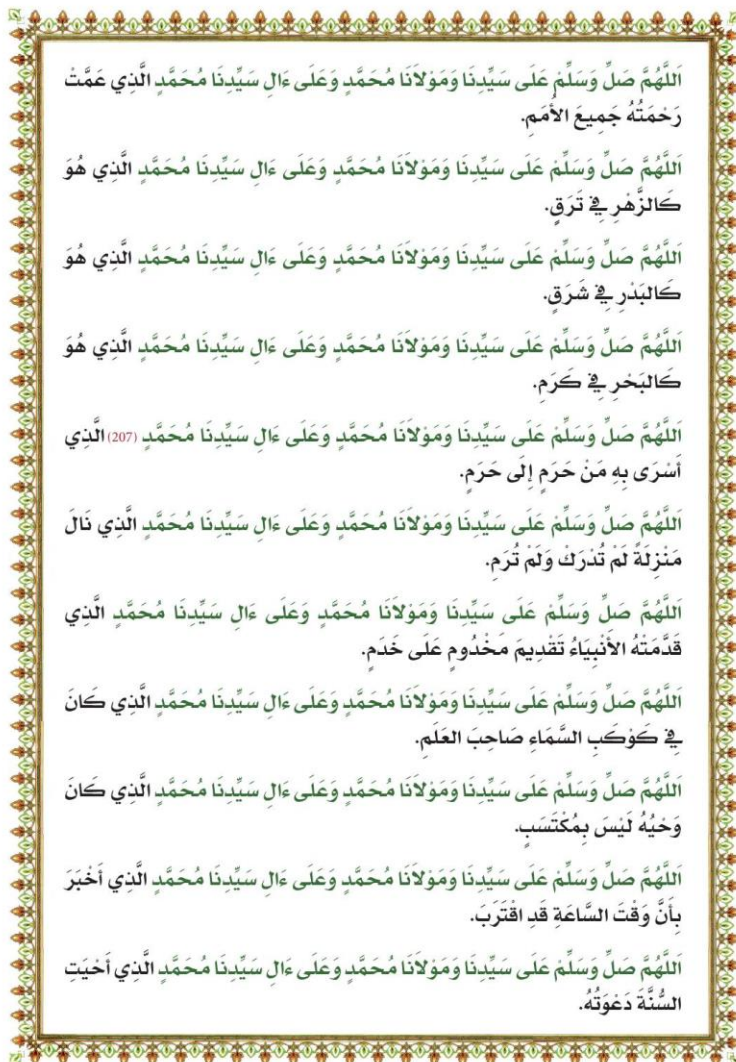 اَللَّهُمَّ صَلِّ وَسَلِّمْ عَلَى سَيِّدِنَا وَمَوْلاَنَا مُحَمَّدٍ وَعَلَى ءَالِ سَيِّدِنَا مُحَمَّدٍ الَّذِي عَمَّتْ
رَحْمَتُهُ جَمِيعَ الأُمَمِ.
اَللَّهُمَّ صَلِّ وَسَلِّمْ عَلَى سَيِّدِنَا وَمَوْلاَنَا مُحَمَّدٍ وَعَلَى ءَالِ سَيِّدِنَا مُحَمَّدٍ الَّذِي هُوَ
كَالزَّهْرِ فِي تَرَقٍ.
اَللَّهُمَّ صَلِّ وَسَلِّمْ عَلَى سَيِّدِنَا وَمَوْلاَنَا مُحَمَّدٍ وَعَلَى ءَالِ سَيِّدِنَا مُحَمَّدٍ الَّذِي هُوَ
كَالبَدْرِ فِي شَرَقٍ.
اَللَّهُمَّ صَلِّ وَسَلِّمْ عَلَى سَيِّدِنَا وَمَوْلاَنَا مُحَمَّدٍ وَعَلَى ءَالِ سَيِّدِنَا مُحَمَّدٍ الَّذِي هُوَ
كَالبَحْرِ فِي كَرَمٍ.
اَللَّهُمَّ صَلِّ وَسَلِّمْ عَلَى سَيِّدِنَا وَمَوْلاَنَا مُحَمَّدٍ وَعَلَى ءَالِ سَيِّدِنَا مُحَمَّدٍ (207) الَّذِي
أَسْرَى بِهِ مَنْ حَرَمٍ إِلَى حَرَمٍ.
اَللَّهُمَّ صَلِّ وَسَلِّمْ عَلَى سَيِّدِنَا وَمَوْلاَنَا مُحَمَّدٍ وَعَلَى ءَالِ سَيِّدِنَا مُحَمَّدٍ الَّذِي نَالَ
مَنْزِلَةً لَمْ تُدْرَكْ وَلَمْ تُرَمِ.
اَللَّهُمَّ صَلِّ وَسَلِّمْ عَلَى سَيِّدِنَا وَمَوْلاَنَا مُحَمَّدٍ وَعَلَى ءَالِ سَيِّدِنَا مُحَمَّدٍ الَّذِي
قَدَّمَتْهُ الأَنْبِيَاءُ تَقْدِيمَ مَخْدُومٍ عَلَى خَدَمٍ.
اَللَّهُمَّ صَلِّ وَسَلِّمْ عَلَى سَيِّدِنَا وَمَوْلاَنَا مُحَمَّدٍ وَعَلَى ءَالِ سَيِّدِنَا مُحَمَّدٍ الَّذِي كَانَ
فِي كَوْكَبِ السَّمَاءِ صَاحِبَ العَلَمِ.
اَللَّهُمَّ صَلِّ وَسَلِّمْ عَلَى سَيِّدِنَا وَمَوْلاَنَا مُحَمَّدٍ وَعَلَى ءَالِ سَيِّدِنَا مُحَمَّدٍ الَّذِي كَانَ
وَحْيُهُ لَيْسَ بِمُكْتَسَبٍ.
اَللَّهُمَّ صَلِّ وَسَلِّمْ عَلَى سَيِّدِنَا وَمَوْلاَنَا مُحَمَّدٍ وَعَلَى ءَالِ سَيِّدِنَا مُحَمَّدٍ الَّذِي أَخْبَرَ
بِأَنَّ وَقْتَ السَّاعَةِ قَدِ اقْتَرَبَ.
اَللَّهُمَّ صَلِّ وَسَلِّمْ عَلَى سَيِّدِنَا وَمَوْلاَنَا مُحَمَّدٍ وَعَلَى ءَالِ سَيِّدِنَا مُحَمَّدٍ الَّذِي أَحْيَتِ
السُّنَّةَ دَعْوَتُهُ.